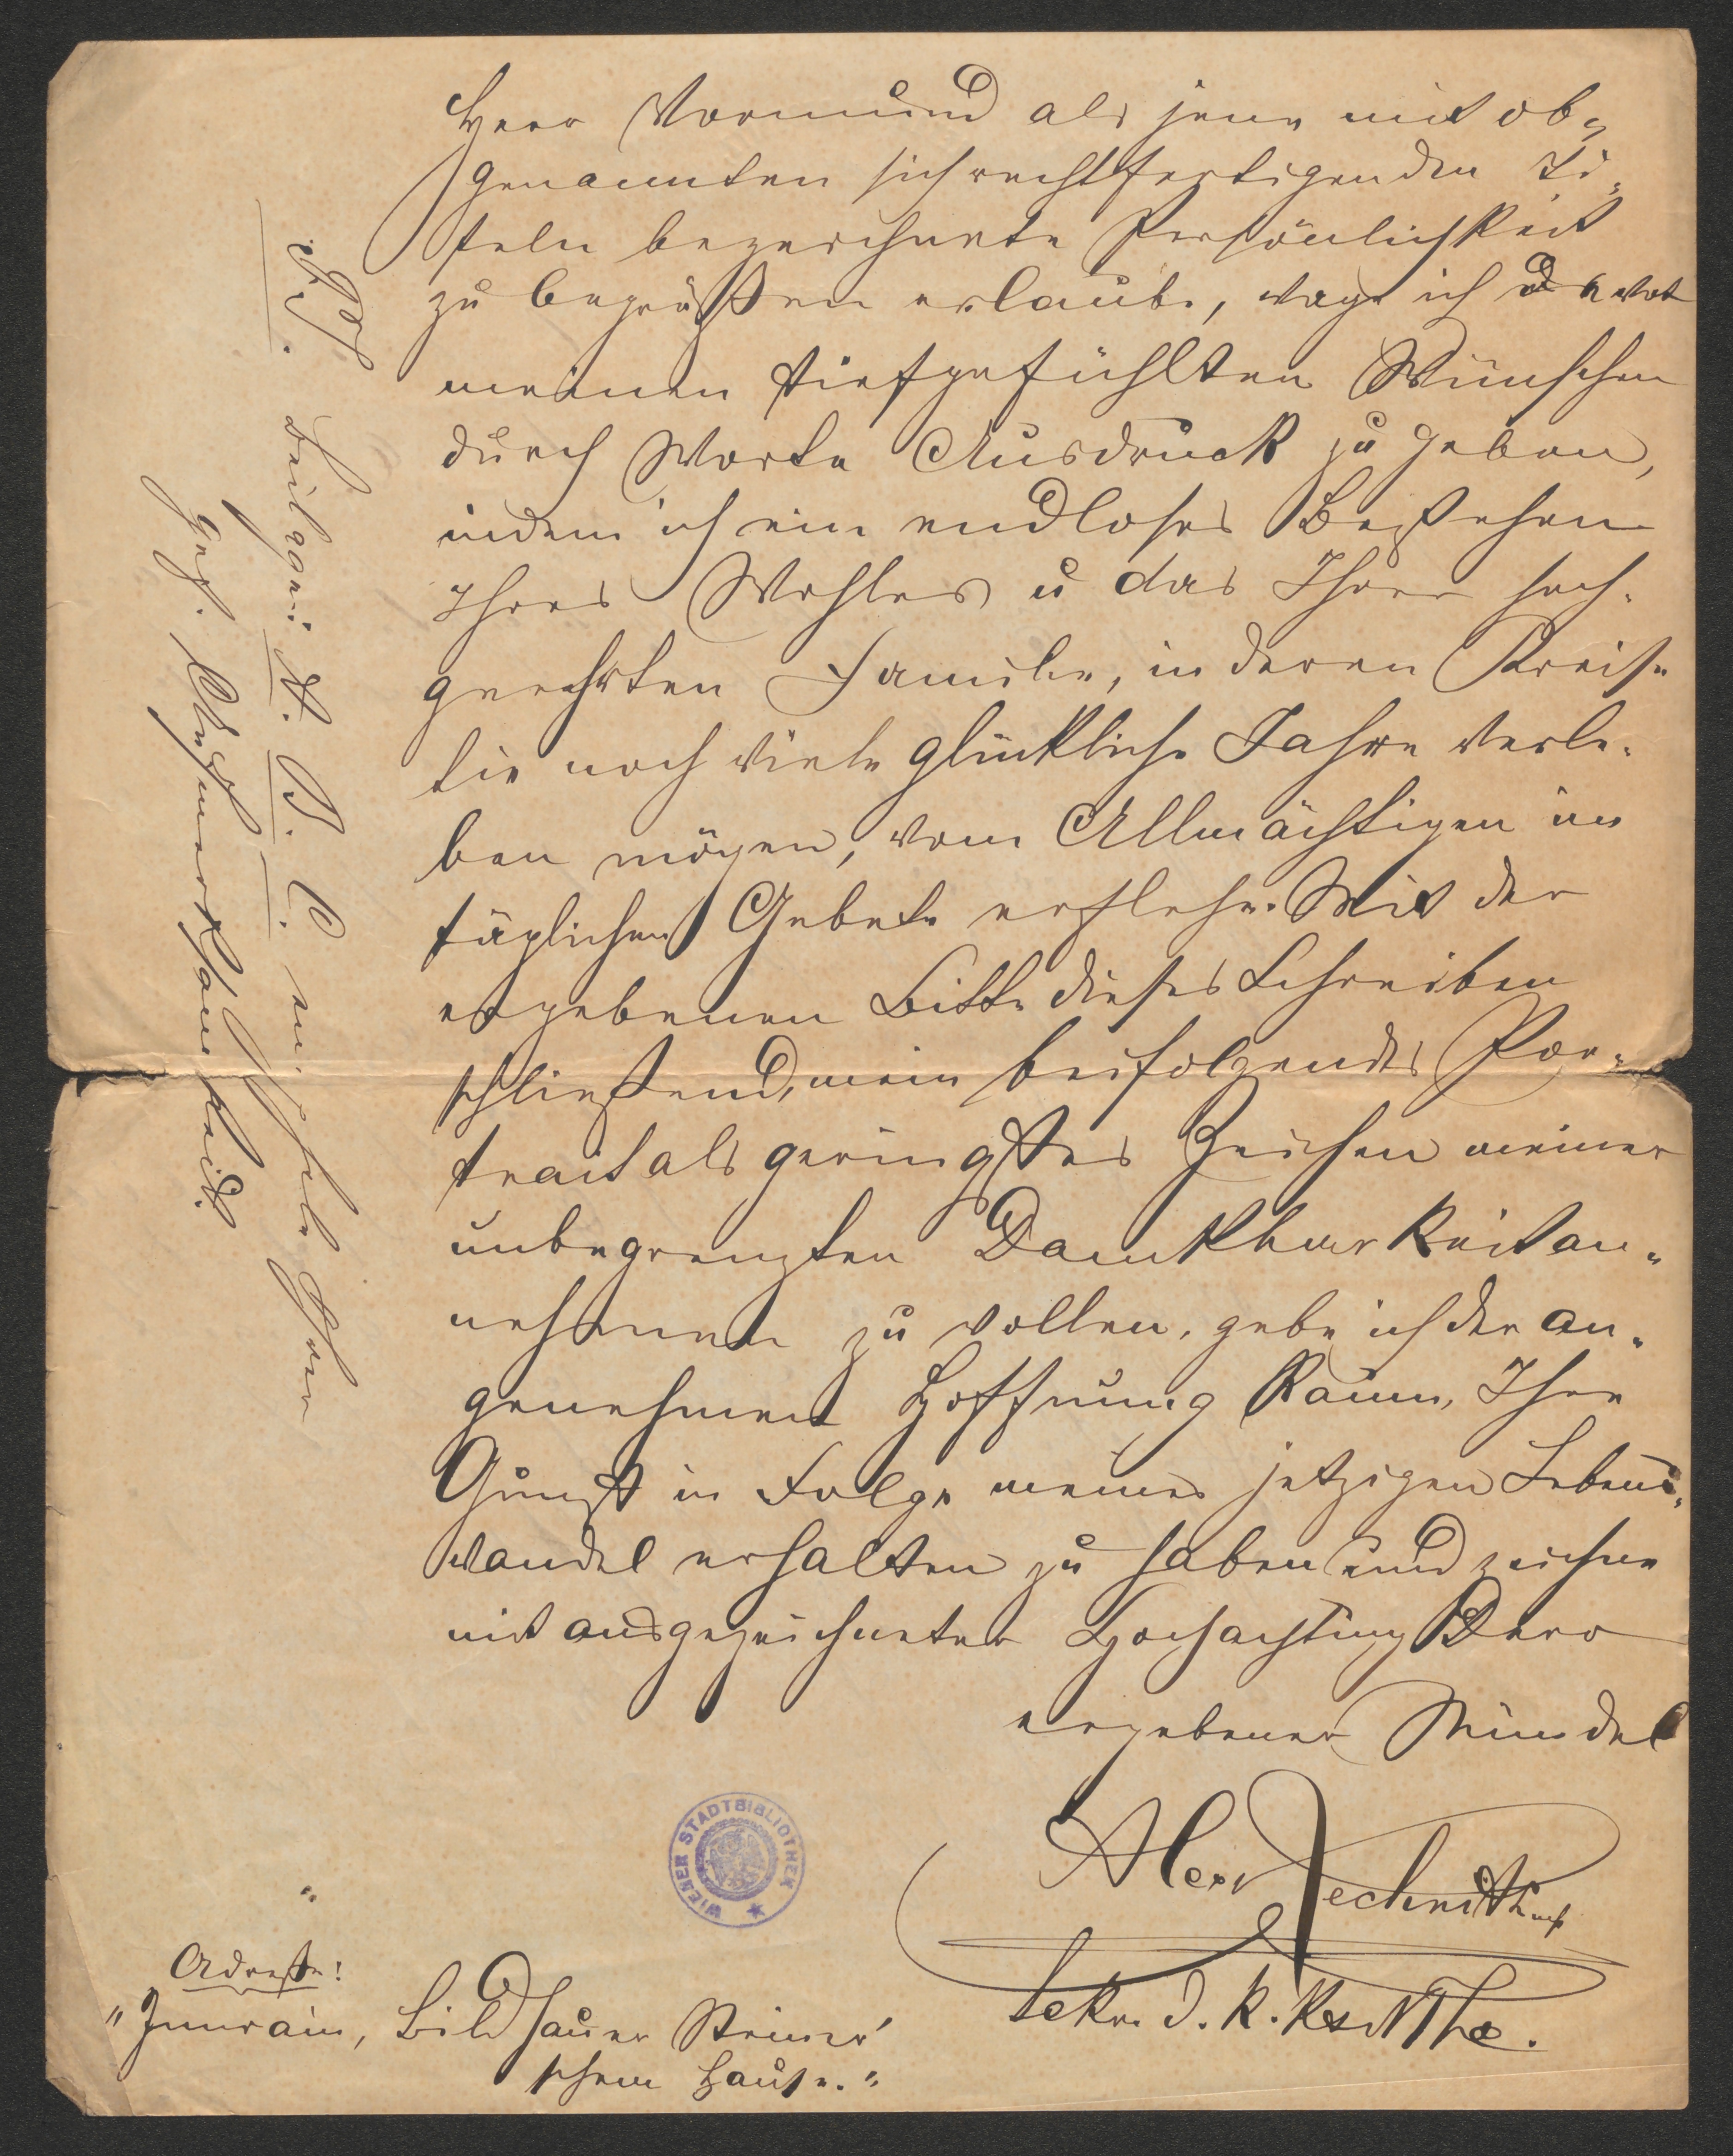 Herr Vormund als jene mit ob-
genannten sich rechtfertigenden Ti-
teln bezeichnete Persönlichkeit
zu begrüßen erlaube, wage ich devot
meinen tiefgefühlten Wünschen
durch Worte Ausdruck zu geben,
indem ich ein endloses Bestehen
Ihres Wohles u das Ihrer hoch-
geehrten Familie, in deren Kreise
Sie noch viele glückliche Jahre verle-
ben mögen, vom Allmächtigen im
täglichen Gebete erflehe. Mit der
ergebenen Bitte dieses Schreiben
schließend, mein beifolgendes Por-
trait als geringstes Zeichen meiner
unbegrenzten Dankbarkeit an-
nehmen zu wollen, gebe ich der an-
genehmen Hoffnung Raum, Ihre
Gunst in Folge meines jetzigen Lebens-
wandel erhalten zu haben und zeichne
mit ausgezeichneter Hochachtung Dero
ergebener Mündel
Alex
Sekr. d. K.
WIENER STADTBIBLIOTHEK
Adresse:
"Innrain, Bildhauer Steiner'
schem Hause."
NB. Beilage: A. B. C. em
gef. Aufmerksamkeit.